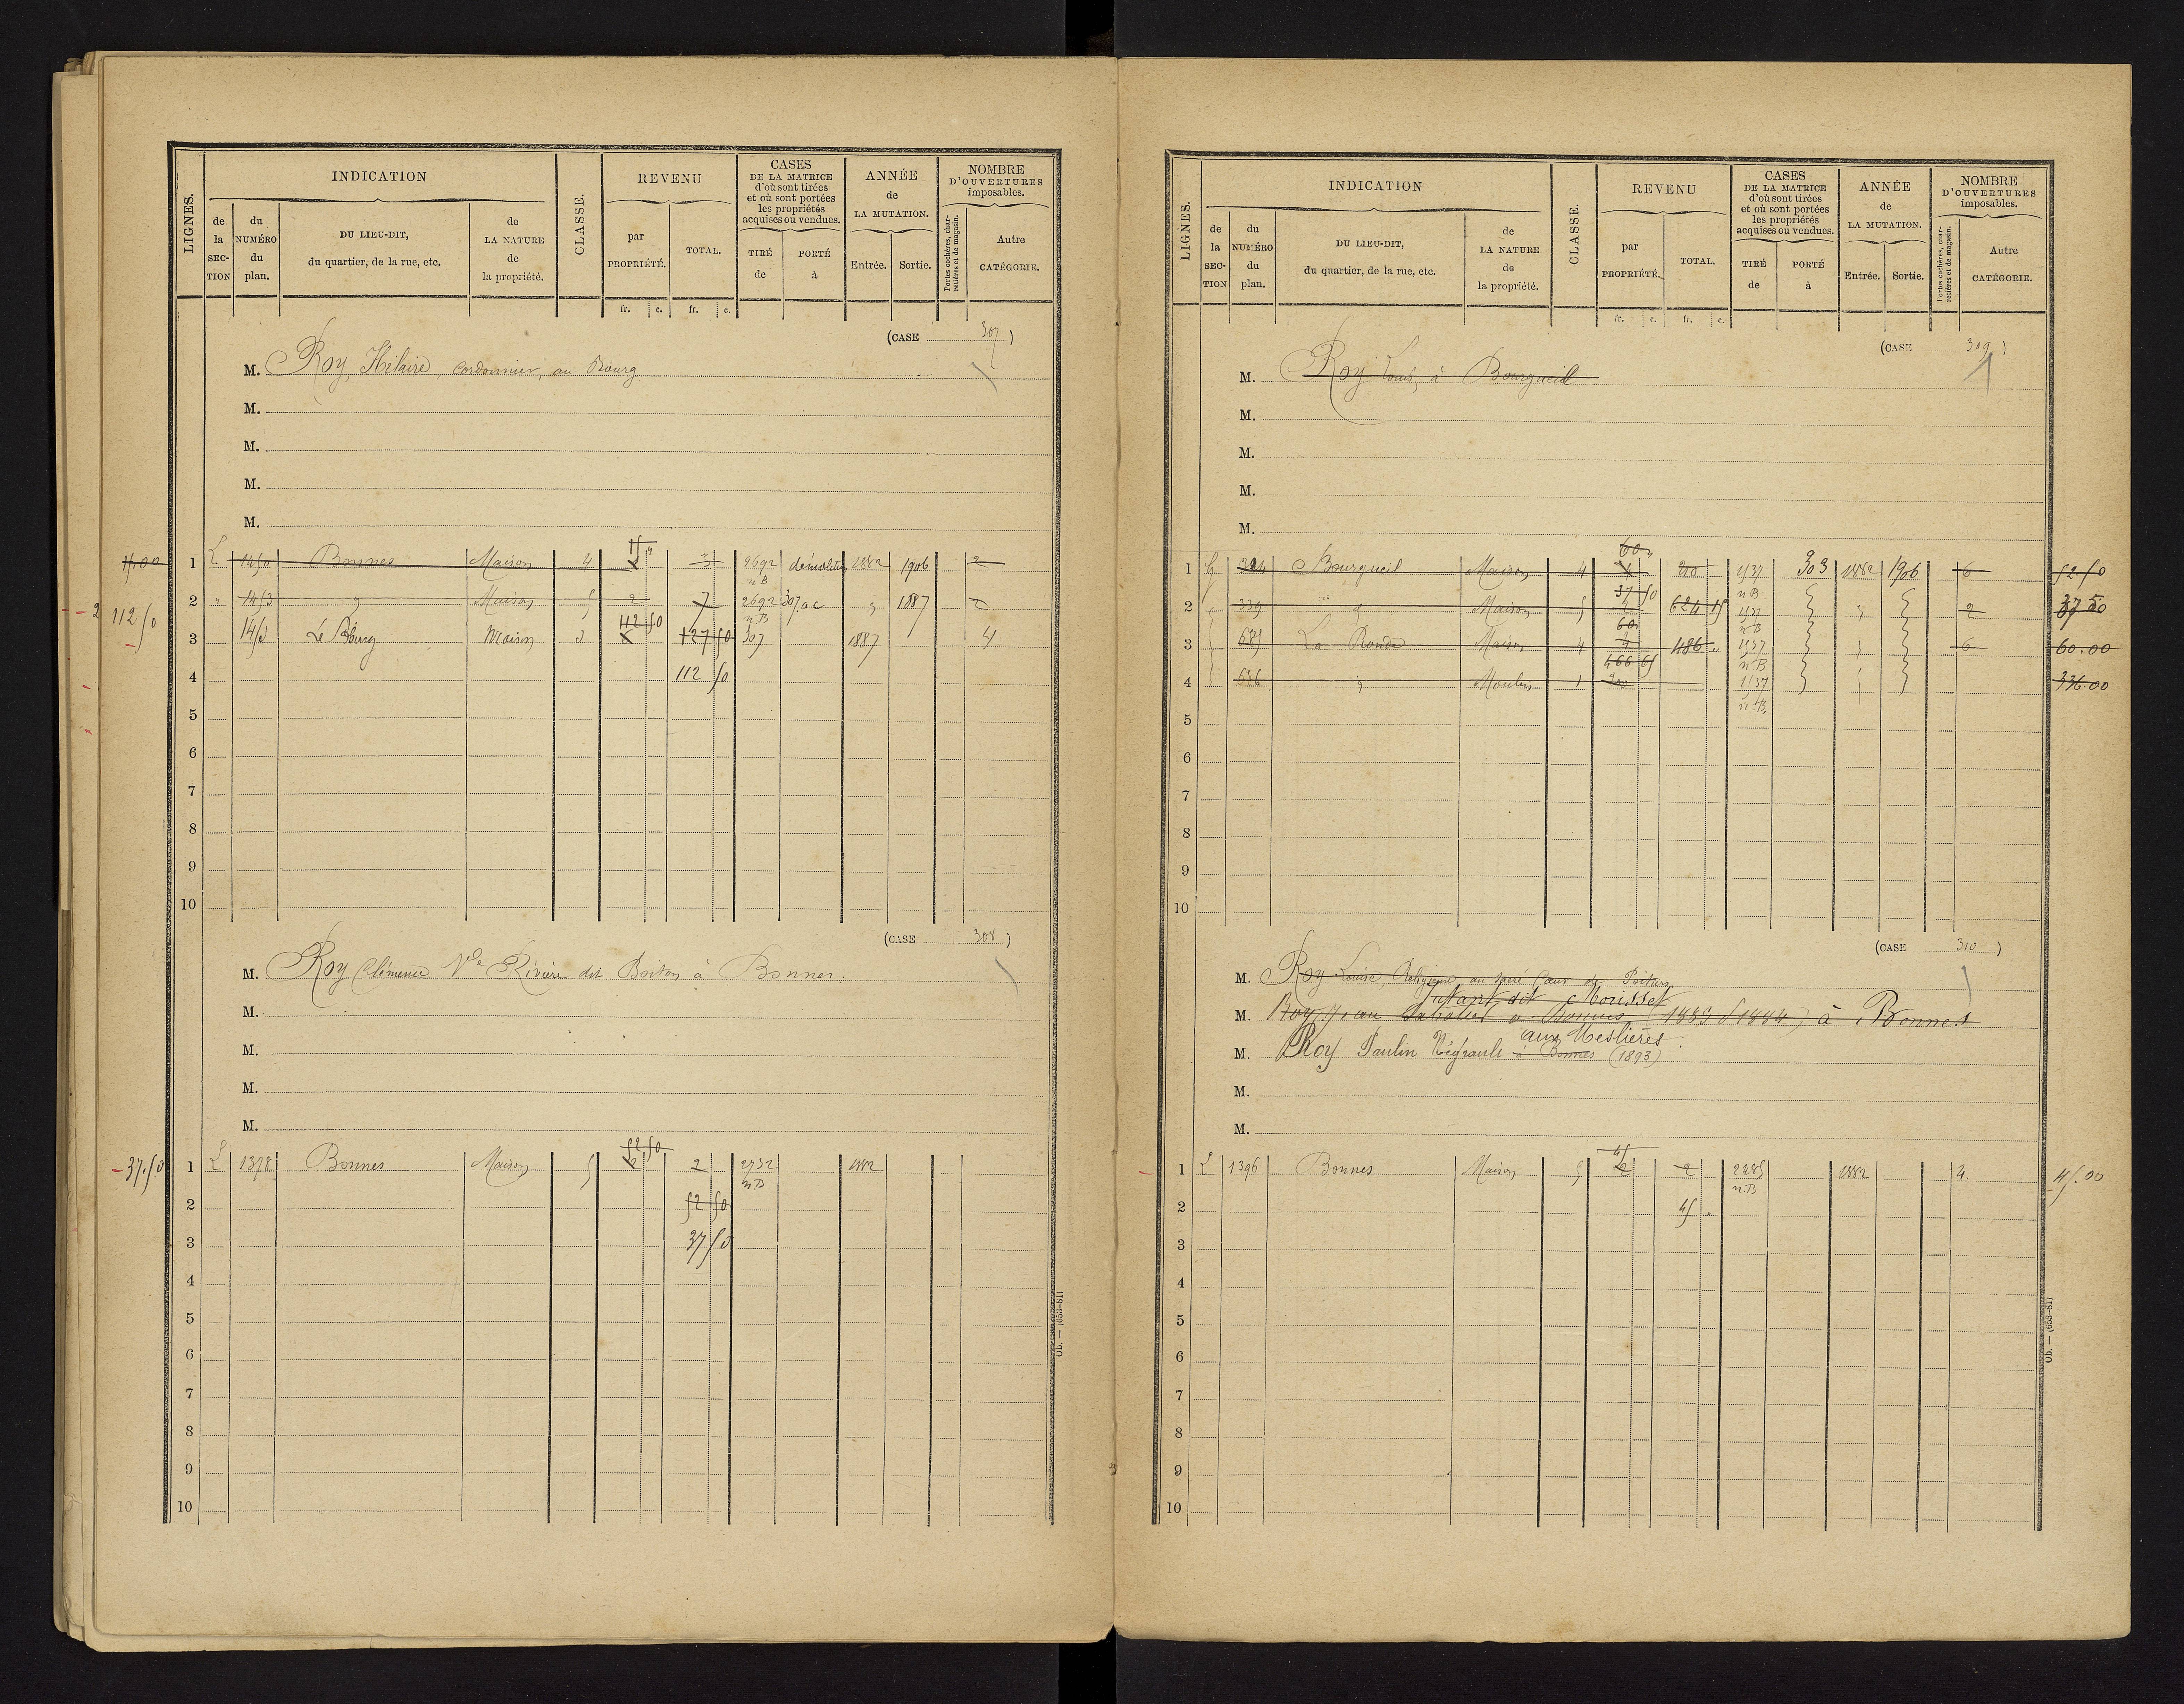 LIGNES.
INDICATION
de la SECTION
du NUMÉRO du plan.
DU LIEU-DIT, du quartier, de la rue, etc.
de LA NATURE de la propriété.
CLASSE.
REVENU
par PROPRIÉTÉ.
TOTAL.
fr. c. fr. c.
CASES DE LA MATRICE d'où sont tirées et où sont portées les propriétés acquises ou vendues.
TIRÉ de
PORTÉ à
ANNÉE de LA MUTATION.
Entrée. Sortie.
NOMBRE D'OUVERTURES imposables.
Portes cochères, charretières et de magasin.
Autre CATÉGORIE.
(CASE 307)
M. Roy, Hilaire, cordonnier, au Bourg
M.
M.
M.
M.
15 "
15.00 1 L 1450 Bonnes Maison 4 2692 démolition 1882 1906 2
n B
2 " 1453 " Maison 5 2 7 2692 307 ac " 1887 2
n B
112 50
2 112 50 3 1453 Le Bourg Maison 2 127 50 307 1887 4
4 112 50
5
6
7
8
9
10
(CASE 308)
M. Roy Clémence Ve Rivière dit Boiton à Bonnes.
M.
M.
M.
M.
52 50
37.50 1 L 1378 Bonnes Maison 5 2 2 2732 1882
n B
2 52 50
3 37 50
4
5
6
7
8
9
10
Ob. — (653-81)
LIGNES.
INDICATION
de la SECTION
du NUMÉRO du plan.
DU LIEU-DIT, du quartier, de la rue, etc.
de LA NATURE de la propriété.
CLASSE.
REVENU
par PROPRIÉTÉ.
TOTAL.
fr. c. fr. c.
CASES DE LA MATRICE d'où sont tirées et où sont portées les propriétés acquises ou vendues.
TIRÉ de
PORTÉ à
ANNÉE de LA MUTATION.
Entrée. Sortie.
NOMBRE D'OUVERTURES imposables.
Portes cochères, charretières et de magasin.
Autre CATÉGORIE.
(CASE 309)
M. Roy Louis, à Bourgueil
M.
M.
M.
M.
60 "
1 G 324 Bourgueil Maison 4 4 210 1537 303 1882 1906 6 52 50
37 50 n B
2 " 339 " Maison 5 624 15 1537 " 2 37 50
60 n B
3 675 La Ronde Maison 4 486 " 1537 6 60.00
466 65 n B
4 686 " Moulin 1 200 1537 336.00
n B
5
6
7
8
9
10
(CASE 310)
M. Roy Louise, Religieuse au Sacré Cœur de Poitiers
dit Mousset
M. Roy, Jean Sabotier à Bonnes 1884, à Bonnes
aux Meslières.
M. Roy Paulin Négrault à Bonnes (1893)
M.
M.
45
1 L 1396 Bonnes Maison 5 2 2 2285 1882 4 45.00
n B
2 45 "
3
4
5
6
7
8
9
10
Ob. — (653-81)